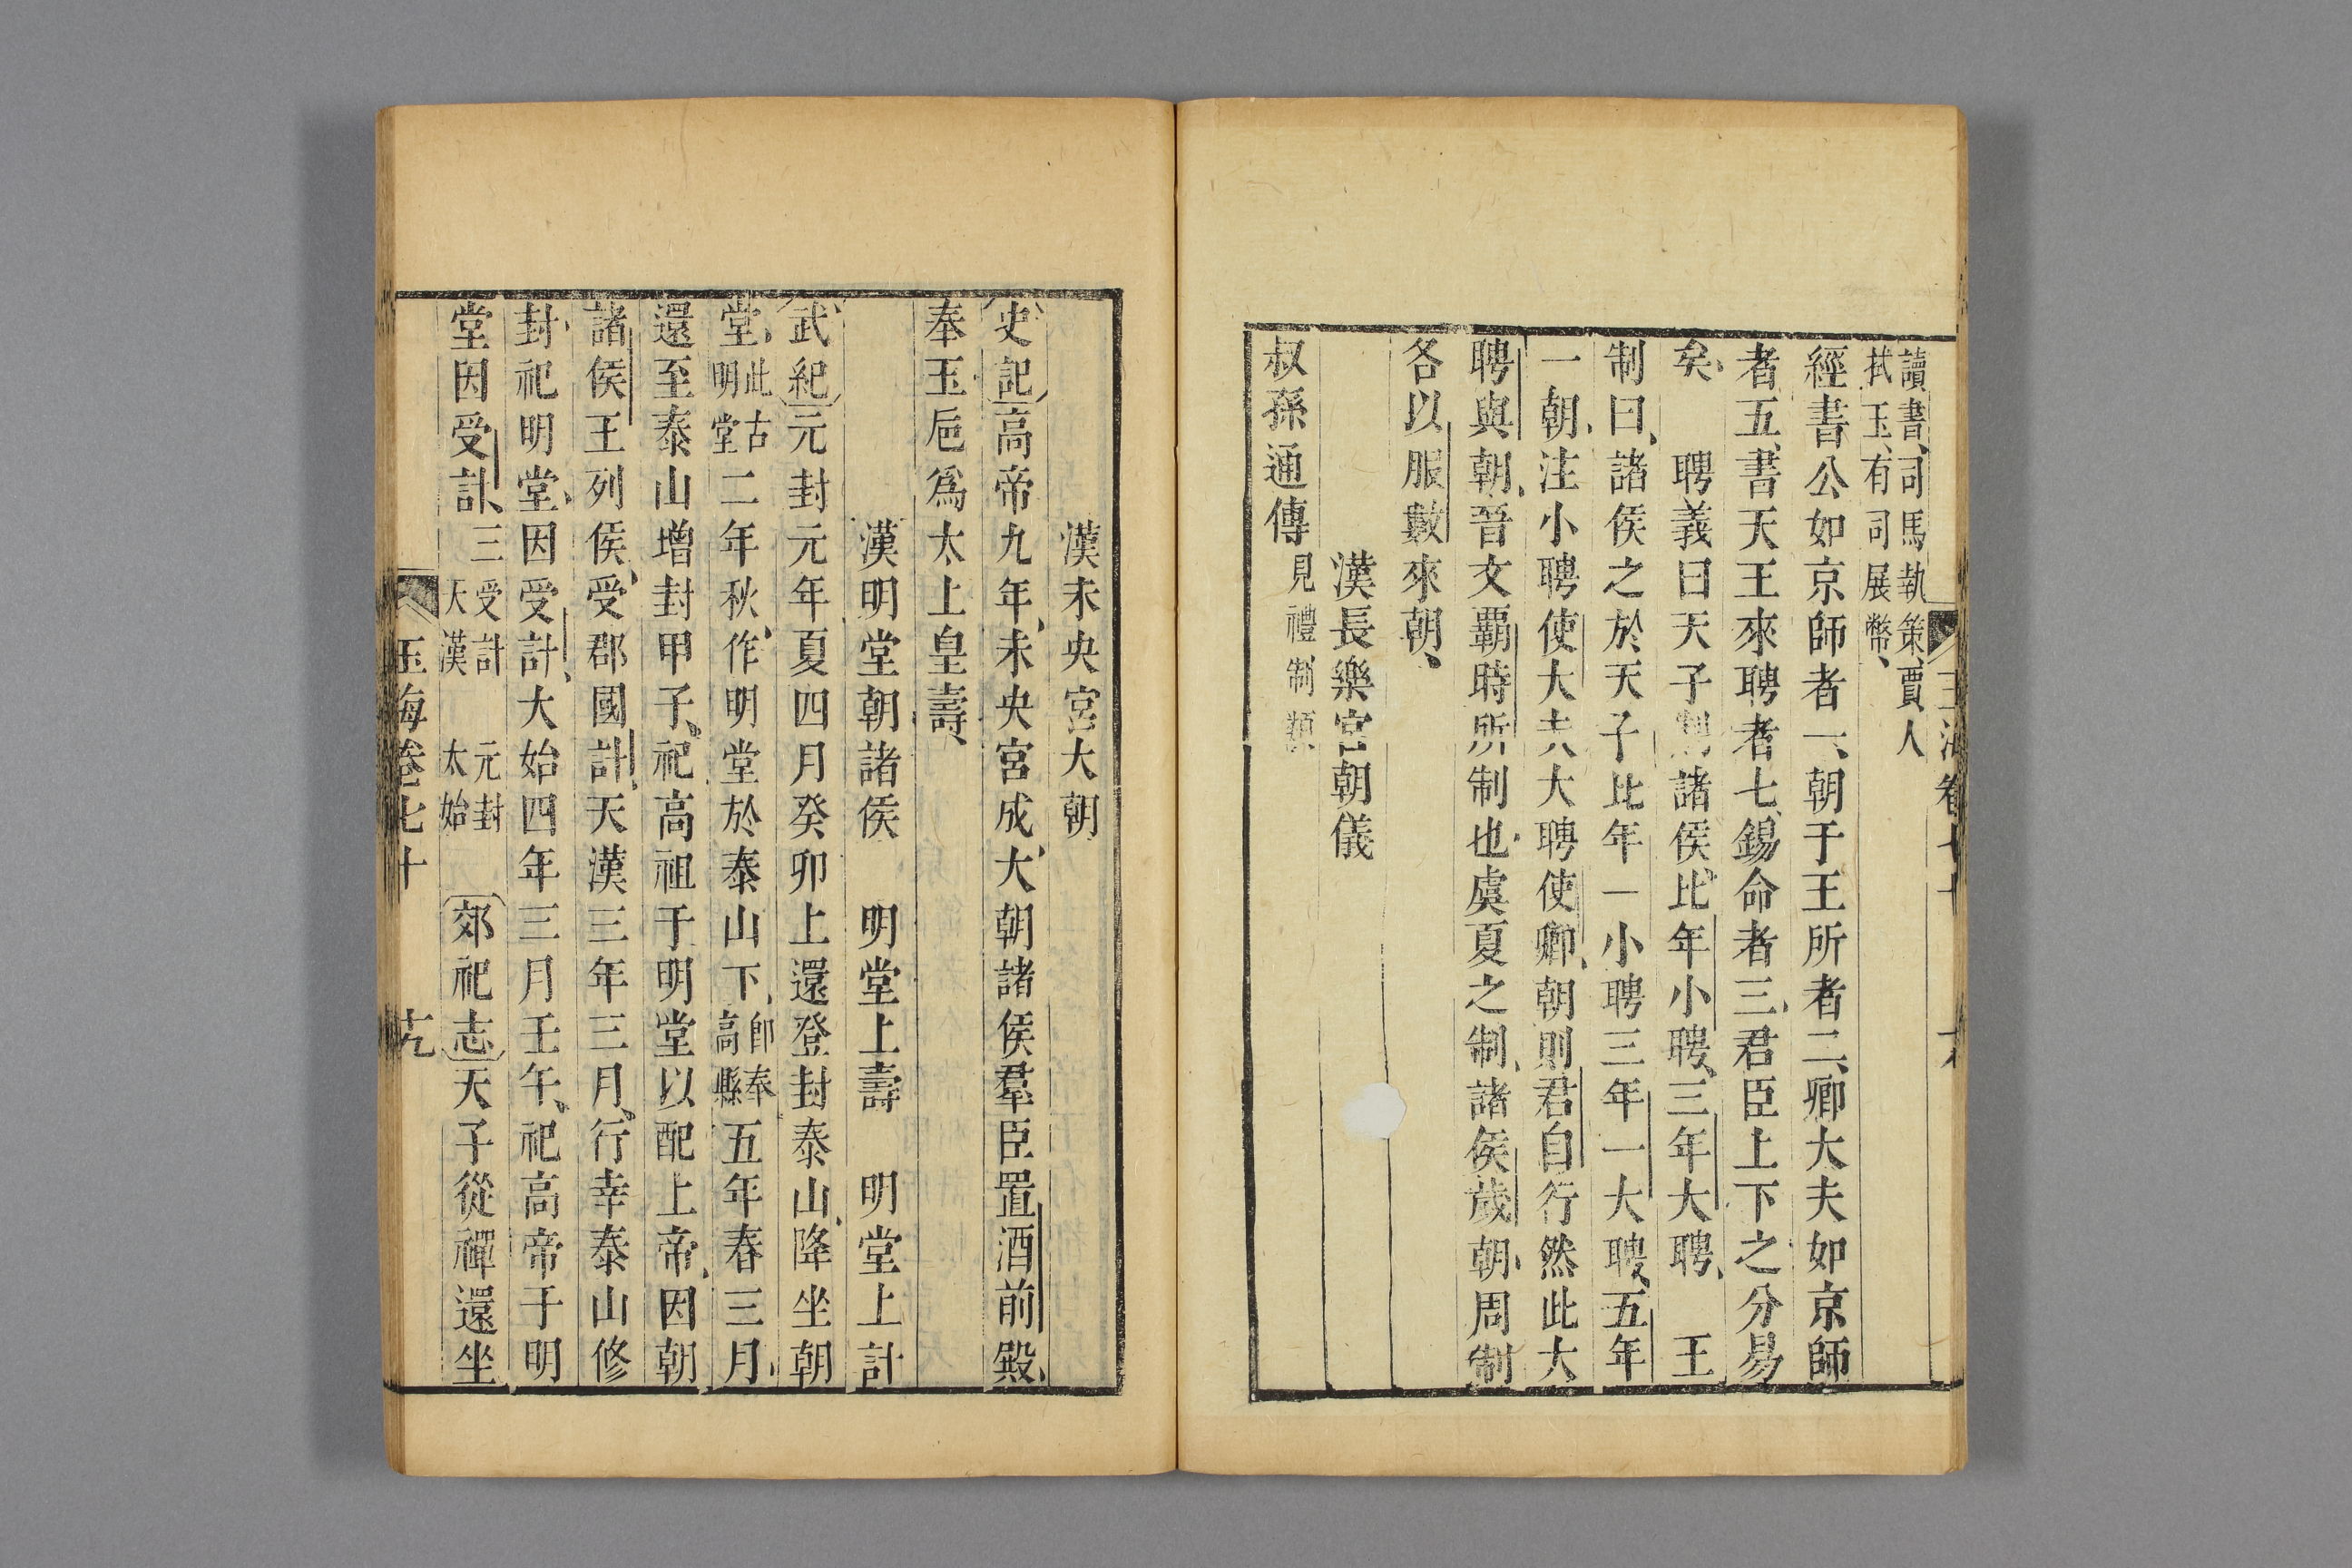 讀書、司馬執策、賈人
拭玉、有司展幣、
經書公如京師者一、朝于王所者二、卿大夫如京師
者五、書天王來聘者七、錫命者三、君臣上下之分易
矣、　聘義曰天子制諸侯、比年小聘、三年大聘、　王
制曰、諸侯之於天子比年一小聘三年一大聘、五年
一朝、注小聘使大夫大聘使卿、朝則君自行然此大
聘與朝、晉文覇時所制也、虞夏之制、諸侯歲朝、周制
各以服數來朝、
漢長樂宮朝儀
叔孫通傳見禮制類
漢未央宮大朝
史記高帝九年、未央宮成、大朝諸侯羣臣置酒前殿、
奉玉巵爲太上皇壽、
漢明堂朝諸侯　明堂上壽　明堂上計
武紀元封元年夏四月癸卯上還登封泰山、降坐明
堂、此古明堂二年秋、作明堂於泰山下、卽奉高縣五年春三月、
還至泰山增封甲子、祀高祖于明堂以配上帝、因朝
諸侯王列侯、受郡國計、天漢三年三月、行幸泰山修
封、祀明堂、因受計、大始四年三月壬午、祀高帝于明
堂因受計、三受計元封天漢太始　郊祀志天子從禪還坐
玉海卷七十　十九